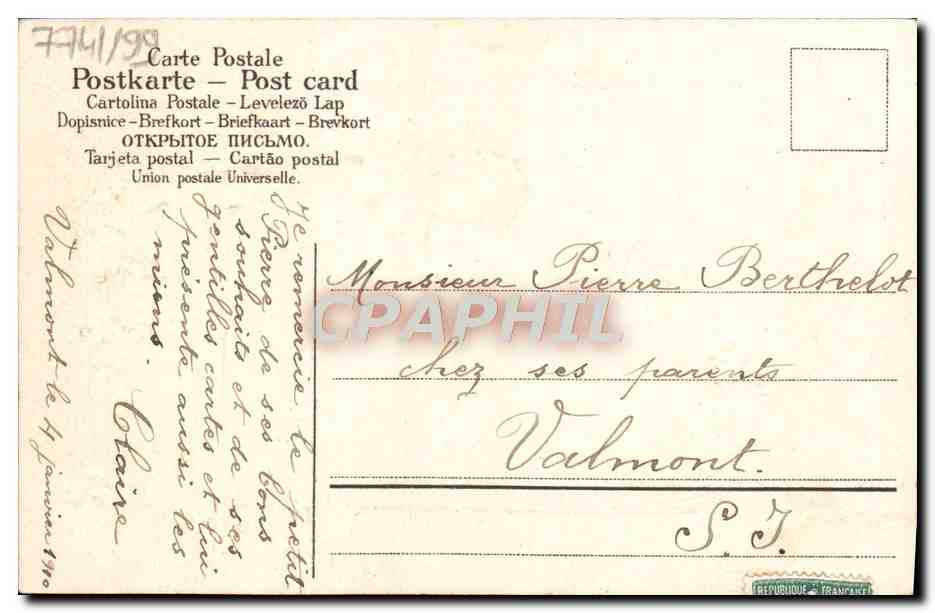 7741/99
Carte Postale
Postkarte – Post card
Cartolina Postale – Levelező Lap
Dopisnice – Brefkort – Briefkaart – Brevkort
ОТКРЫТОЕ ПИСЬМО.
Tarjeta postal — Cartão postal
Union postale Universelle.
Je remercie le petit
Pierre de ses bons
souhaits et de ses
gentilles cartes et lui
présente aussi les
miens.
Claire
Valmont le 4 janvier 1910
Monsieur Pierre Berthelot
chez ses parents
Valmont.
S. I.
CPAPHIL
REPUBLIQUE FRANÇAISE